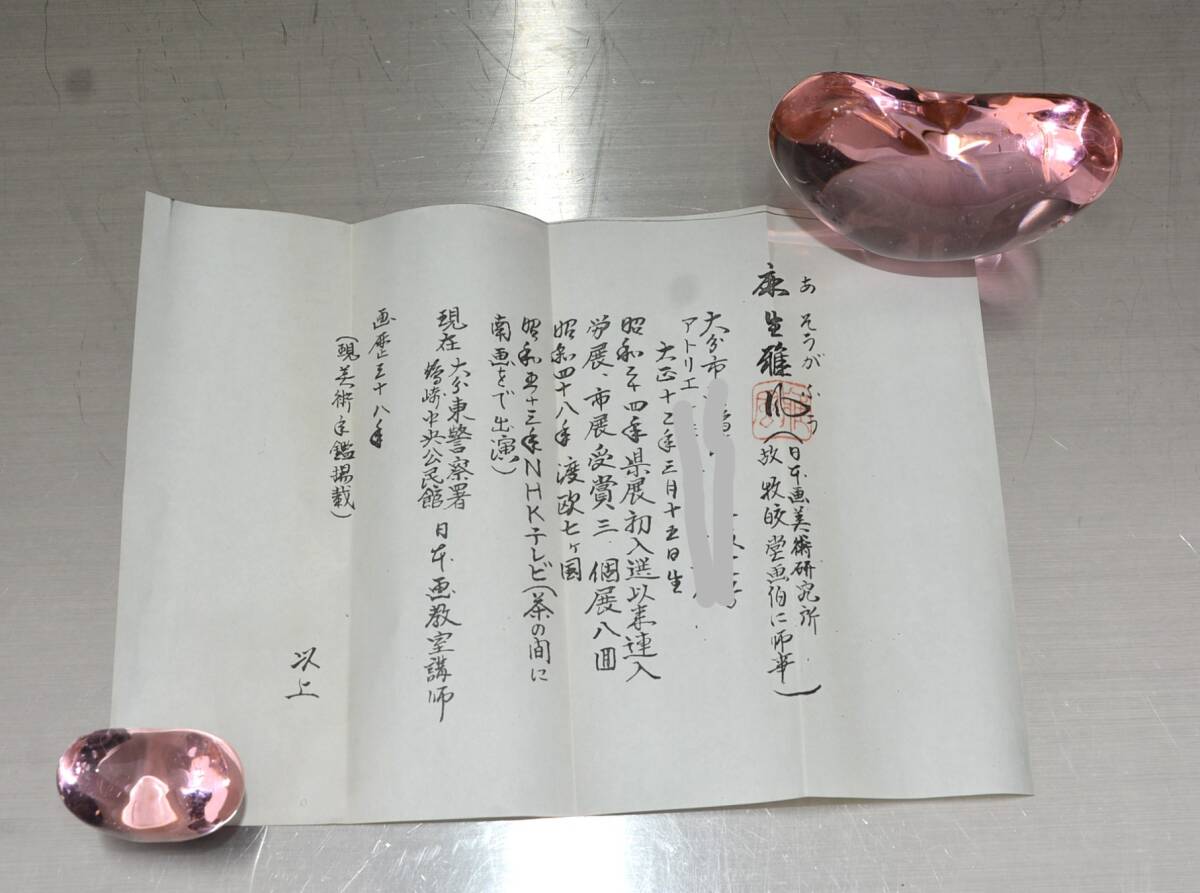 あそうがふう
麻生雅風
(日本画美術研究所
故牧皎堂画伯に師事)
大分市
アトリエ
大正十二年三月十五日生
昭和 四年県展初入選以来連入
労展、市展受賞三、個展八回
昭和四十八年渡欧七ヶ国
昭和五十三年NHKテレビ(茶の間に
南画をで出演)
現在 大分東警察署
鶴崎中央公民館
日本画教室講師
画歴三十八年
(現美術年鑑掲載)
以上